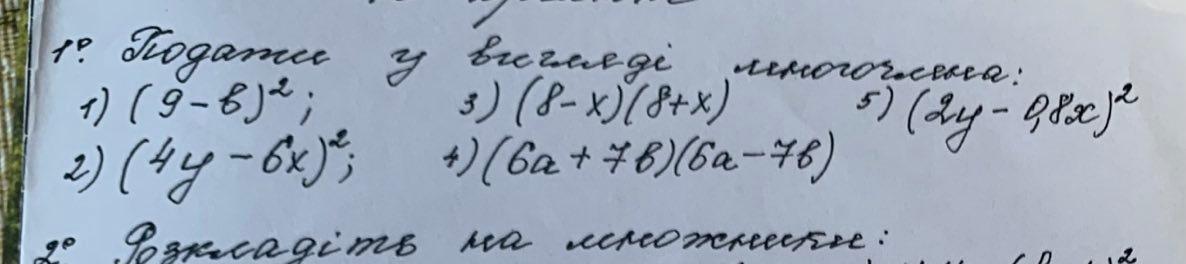 1° Подати у вигляді многочлена:
1) (9-в)²; 3) (8-x)(8+x) 5) (2y-0,8x)²
2) (4y-6x)²; 4) (6a+7в)(6a-7в)
2° Розкладіть на множники: